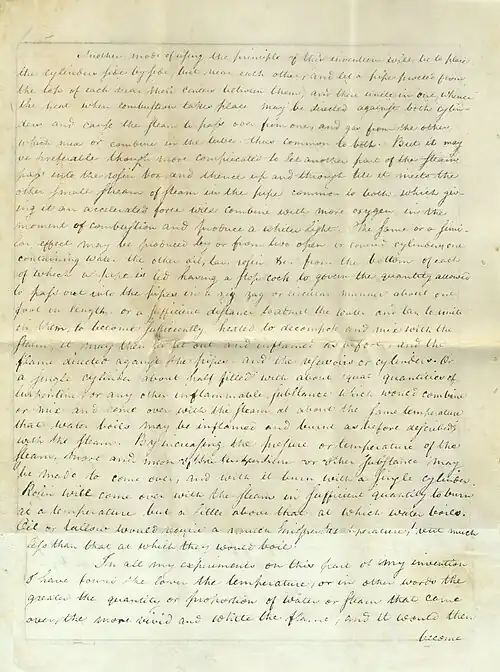 Another mode of using the principle of this invention will be to place
the cylinders side by side but near each other, and let a pipe proceed from
the top of each near their centers between them, and there unite in one whence
the heat when combustion takes place may be directed against both cylin-
ders and cause the steam to pass over from one, and gas from the other,
which mix or combine in the tube thus common to both. But it may
be preferable though more complicated to let another part of the steam
pass into the rosin box and thence up and through till it meets the
other small stream of steam in the pipe common to both which giv-
ing it an accelerated force will combine with more oxygen in the
moment of combustion and produce a whiter light. The same or a simi-
lar effect may be produced by or from two open or round cylinders one
containing water the other oil, tar, rosin &c. from the bottom of each
of which a pipe is led having a stop cock to govern the quantity allowed
to pass out into the pipes in a zig zag or circular manner about one
foot in length, or a sufficient distance to admit the water and tar to unite
in them, to become sufficiently heated to decompose and mix with the
steam, it may then be let out and inflamed as before, and the
flame directed against the pipes and the reservoirs or cylinders. Or
a single cylinder about half filled with about equal quantities of
turpentine or any other inflammable substance which would combine
or mix and come over with the steam at about the same temperature
that water boils may be inflamed and burnt as before described
with the steam. By increasing the pressure or temperature of the
steam, more and more of the turpentine or other substance may
be made to come over, and with it burn with a single cylinder.
Rosin will come over with the steam in sufficient quantity to burn
at a temperature but a little above that at which water boils.
Oil or tallow would require a much higher temperature, but much
less than that at which they would boil.
In all my experiments on this part of my invention
I have found the lower the temperature, or in other words the
greater the quantity or proportion of water or steam that came
over, the more vivid and white the flame, and it would then
become